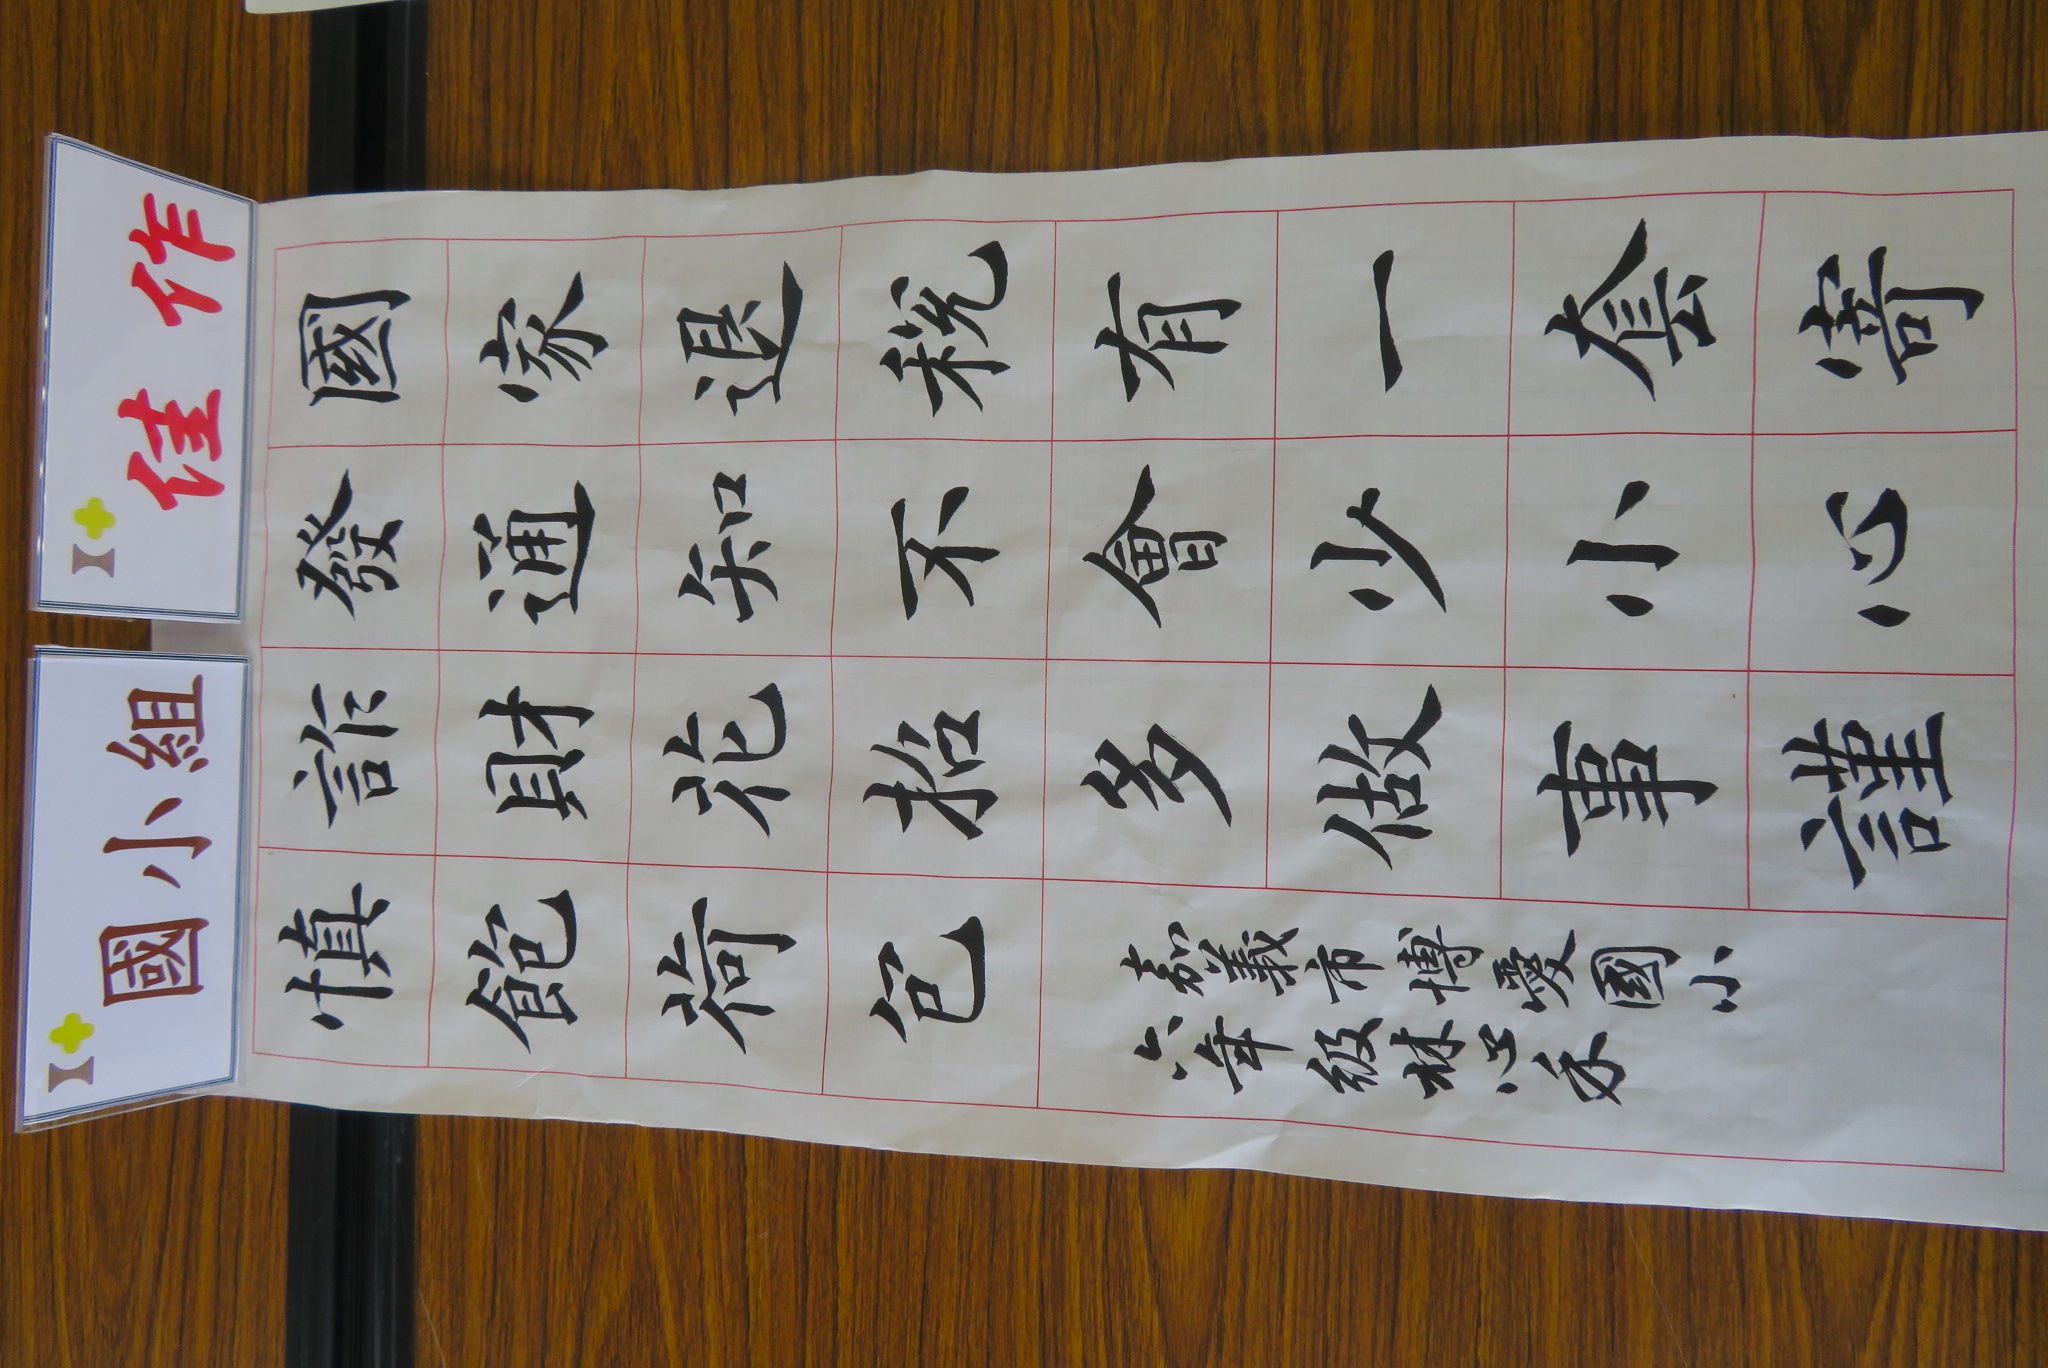 國小組
佳作
國家退稅有一套寄
發通知不會少小心
詐財花招多做事謹
慎飽荷包
嘉義市博愛國小
六年級林